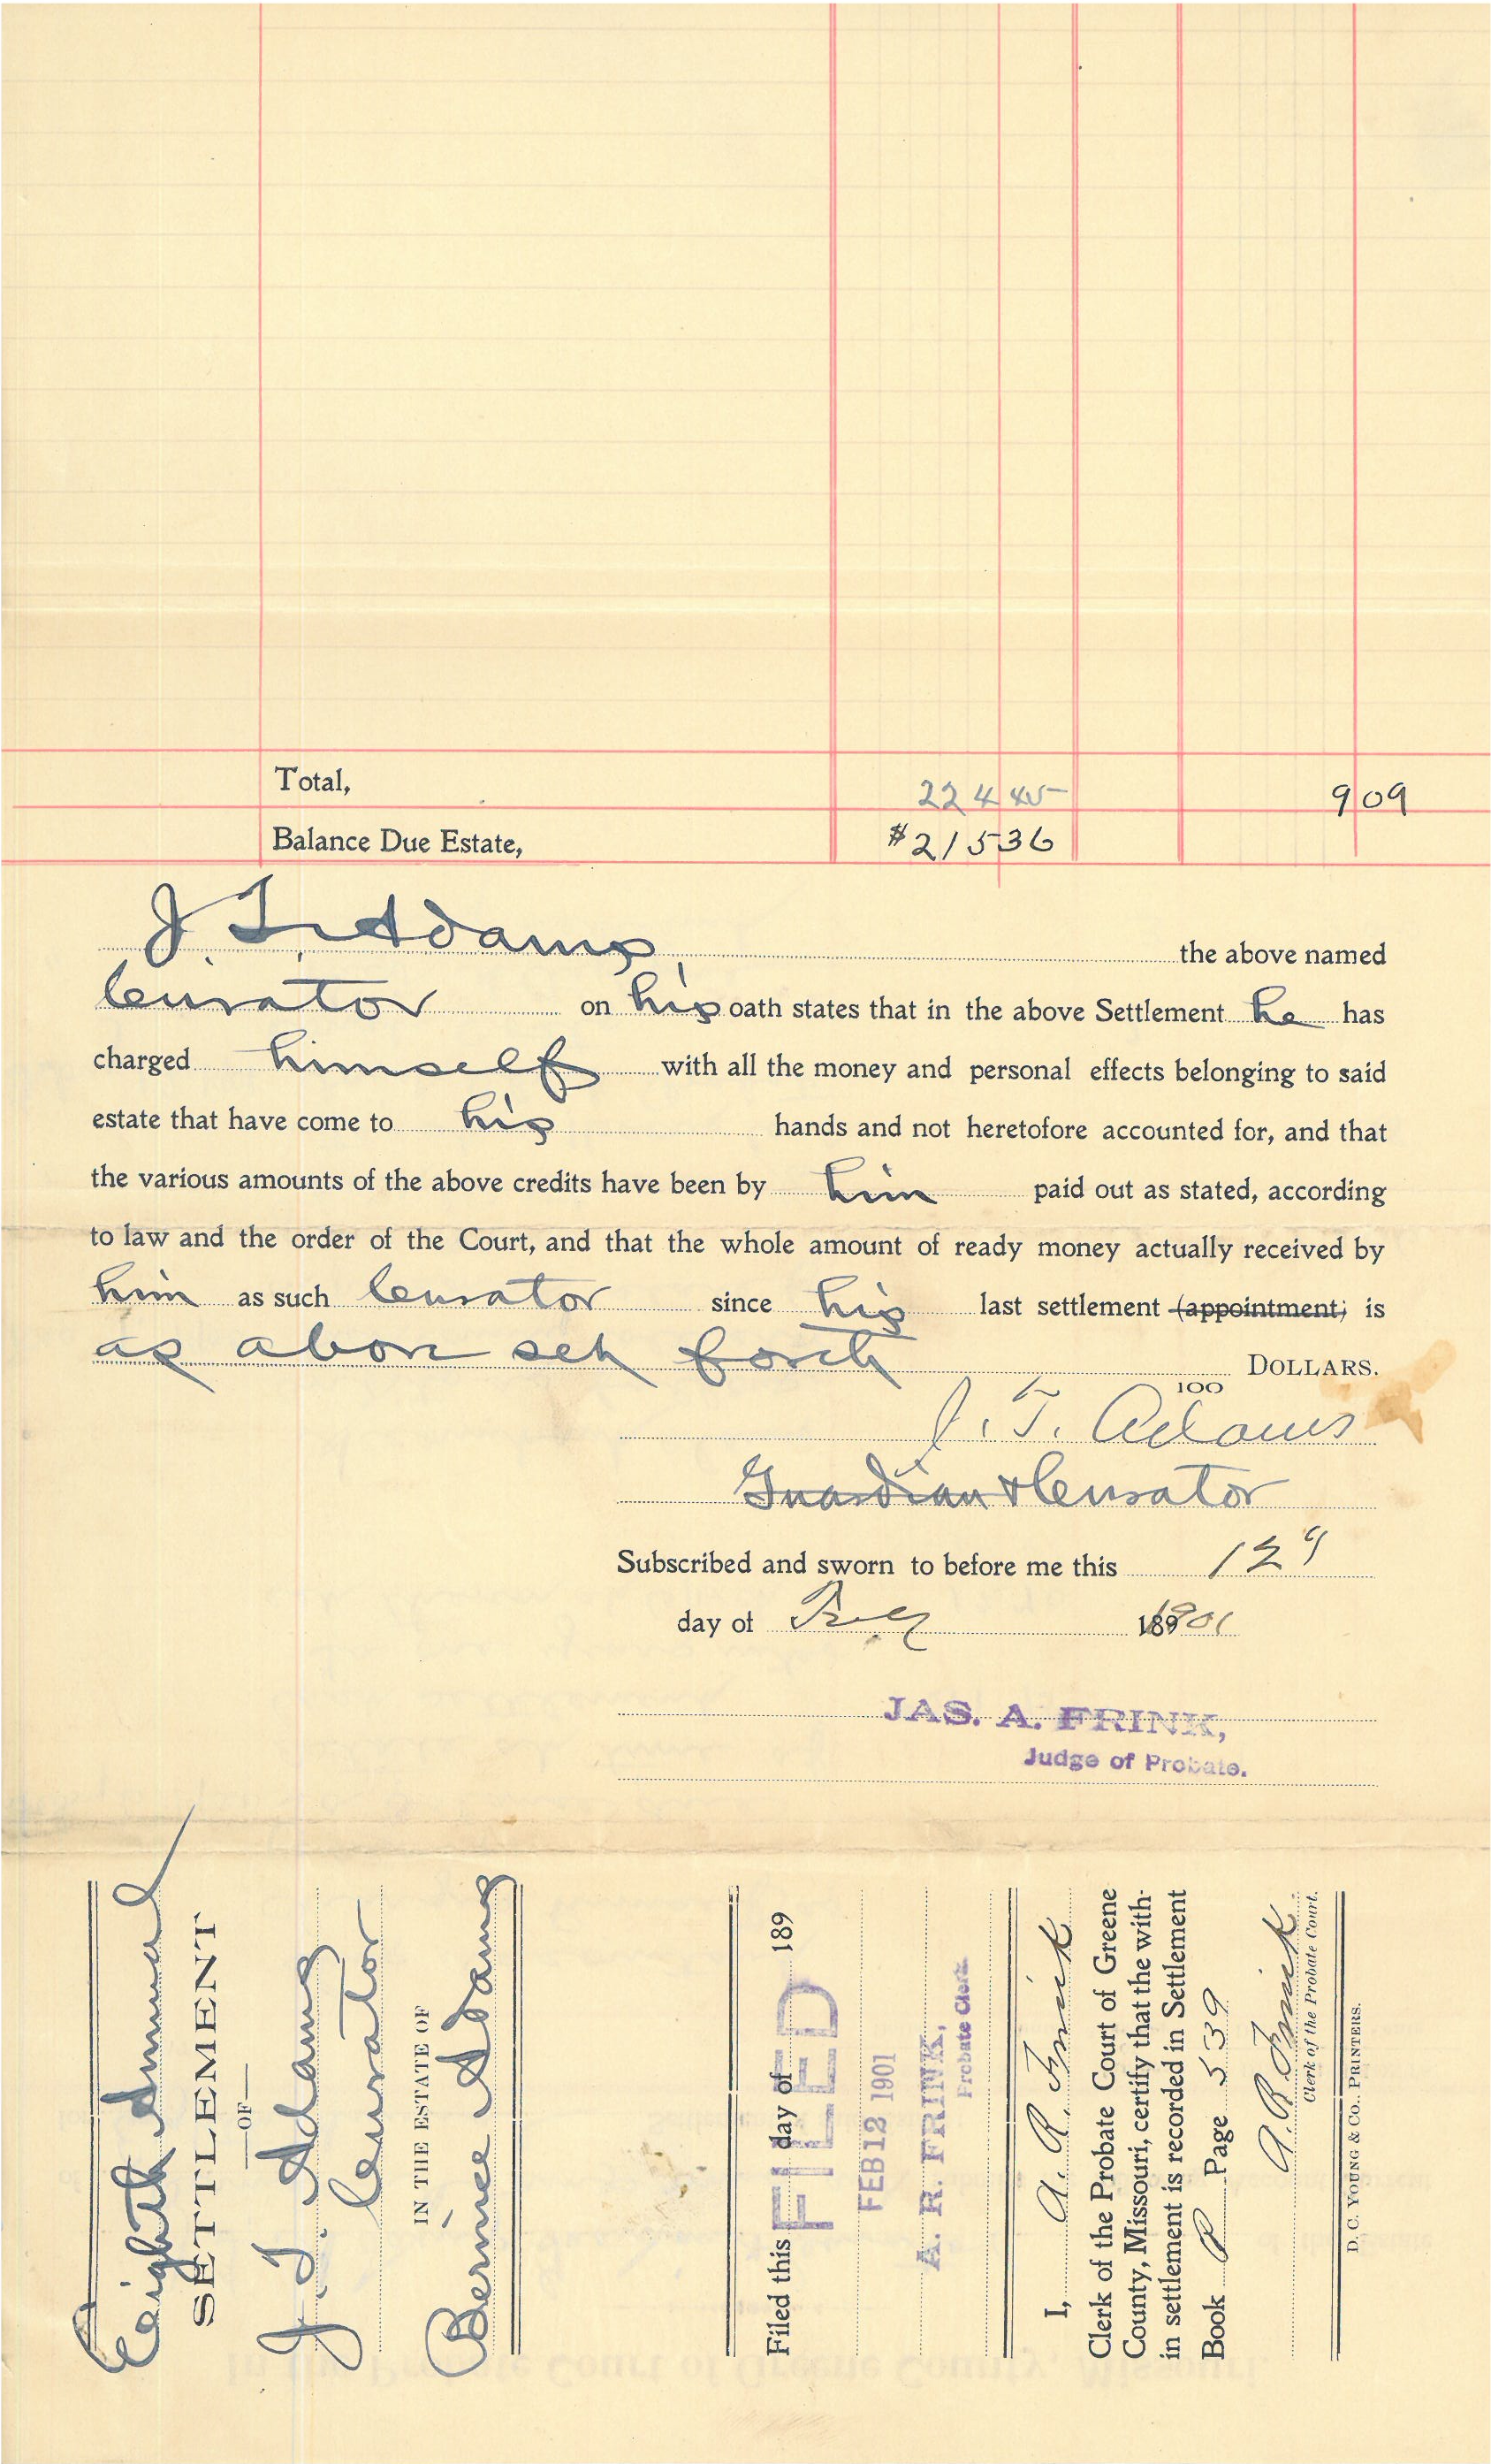 Total, 224 45 9 09
Balance Due Estate, $215 36
J. T. Adams, the above named
Curator on his oath states that in the above Settlement he has
charged himself with all the money and personal effects belonging to said
estate that have come to his hands and not heretofore accounted for, and that
the various amounts of the above credits have been by him paid out as stated, according
to law and the order of the Court, and that the whole amount of ready money actually received by
him as such Curator since his last settlement (appointment) is
as above set forth DOLLARS.
100
J. T. Adams
Guardian & Curator
Subscribed and sworn to before me this 12"
day of Feby 1901
JAS. A. FRINK,
Judge of Probate.
Eighth Annual
SETTLEMENT
—OF—
J. T. Adams
Curator
IN THE ESTATE OF
Bernice Adams
Filed this day of 189
FILED
FEB 12 1901
A. R. FRINK,
Probate Clerk.
I, A. R. Frink
Clerk of the Probate Court of Greene
County, Missouri, certify that the with-
in settlement is recorded in Settlement
Book P Page 539
A. R. Frink
Clerk of the Probate Court.
D. C. YOUNG & CO., PRINTERS.